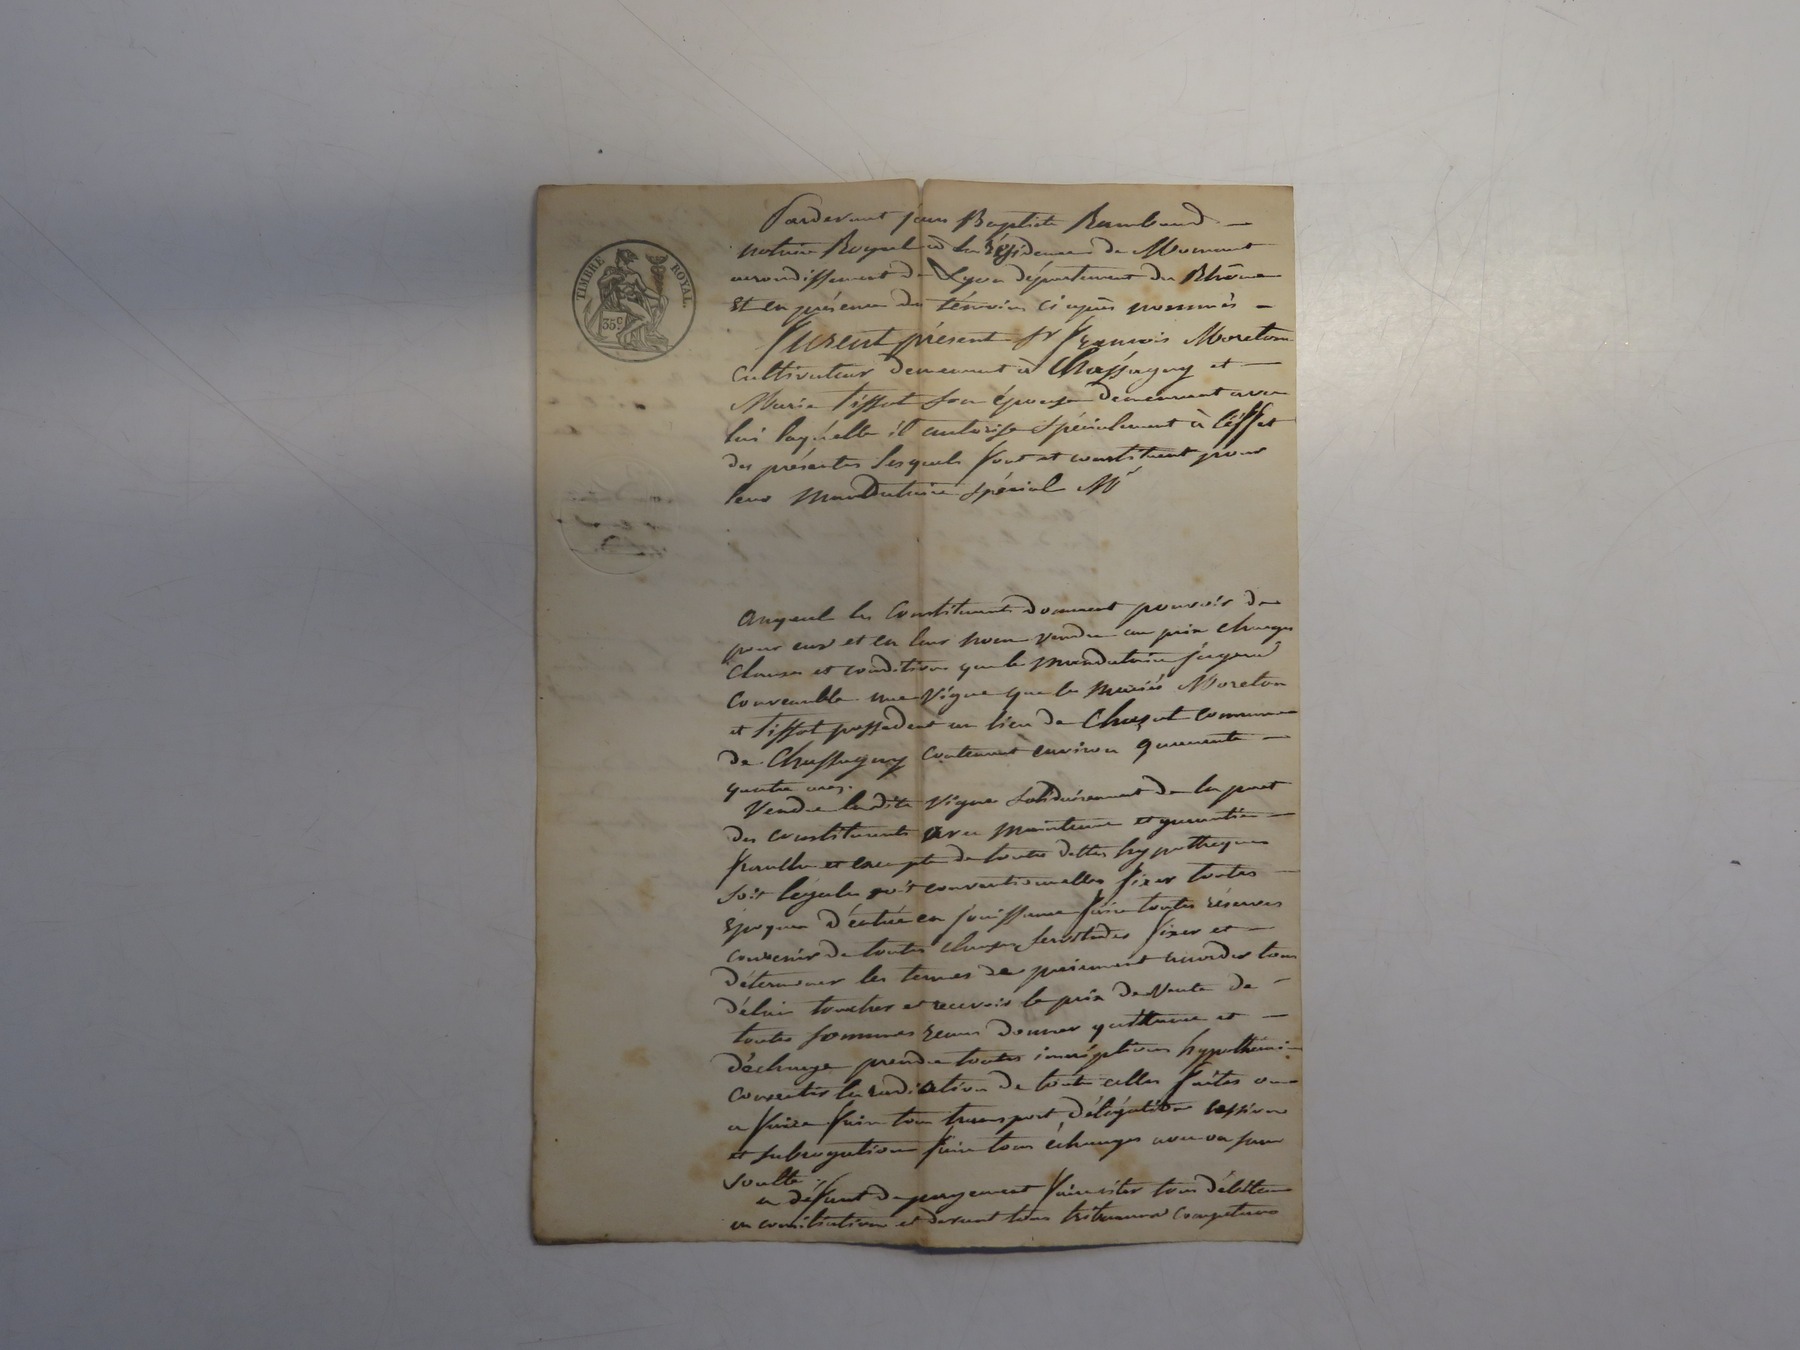 TIMBRE ROYAL.
35 c
Pardevant Jean Baptiste Rambaud
notaire Royal à la résidence de Mornant
arrondissement de Lyon département du Rhône
Et en présence des témoins ci après nommés
Furent présent Sr François Moreton
Cultivateur demeurant à Chassagny et
Marie Tissot son épouse demeurant avec
lui laquelle il autorise spécialement à l'effet
des présentes lesquels font et constituent pour
leur mandataire spécial Mr
Auquel les constituants donnent pouvoir de
pour eux et en leur nom vendre au prix charges
clauses et conditions que le mandataire jugera
convenable une vigne que les mariés Moreton
et Tissot possèdent au lieu de Chazot commune
de Chassagny contenant environ quarante
quatre ares.
Vendre ladite vigne solidairement de la part
des constituants avec maintenue et garantie
franche et exempte de toutes dettes hypothèques
soit légales soit conventionnelles fixer toutes
époques d'entrée en jouissance faire toutes réserves
convenir de toutes charges servitudes fixer et
déterminer les termes de paiement accorder tous
délais toucher et recevoir le prix de vente de
toutes sommes reçues donner quittance et
décharge prendre toutes inscriptions
consentir la radiation de toute celles faites ou
a faire faire tous transport délégation cession
et subrogation faire tous échanges avec ou sans
soulte.
a défaut de payement faire citer tous débiteurs
en conciliation et devant tous tribunaux